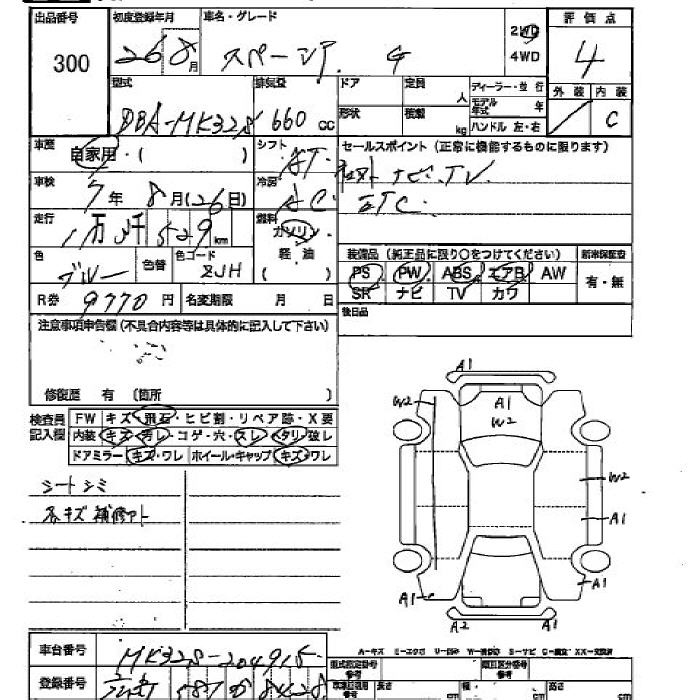 出品番号 初度登録年月 車名・グレード 2WD 評価点
300 26 8月 スペーシア G 4WD 4
型式 排気量 ドア 定員 人 ディーラー・並行 外装 内装
DBA-MK32S 660 cc 形状 積載 kg モデル年式 年 C
ハンドル 左・右
車歴 自家用・( ) シフト AT セールスポイント (正常に機能するものに限ります)
車検 7年 8月(26日) 冷房 AC ナビ、TV
走行 1万 529 km 燃料 ガソリン ETC
軽油
( )
色 ブルー 色替 色コード ZJH
装備品 (純正品に限り○をつけてください) 新車保証書
PS PW ABS エアB AW 有・無
SR ナビ TV カワ
R券 9770円 名変期限 月 日
後日品
注意事項申告欄(不具合内容等は具体的に記入して下さい)
修復歴 有 (箇所 )
検査員記入欄 FW キズ・飛石・ヒビ割・リペア跡・X要
内装 キズ・汚レ・コゲ・穴・スレ・ヘタリ・破レ
ドアミラー キズ・ワレ ホイール・キャップ キズ・ワレ
シートシミ
各キズ補修アト
A1
W2 A1
W2
W2
A1
A1 A1
A2 A1
車台番号 MK32S-204915
A-キズ
登録番号 587
型式指定番号 参考 類別区分番号 参考
長さ cm 幅 cm 高さ cm